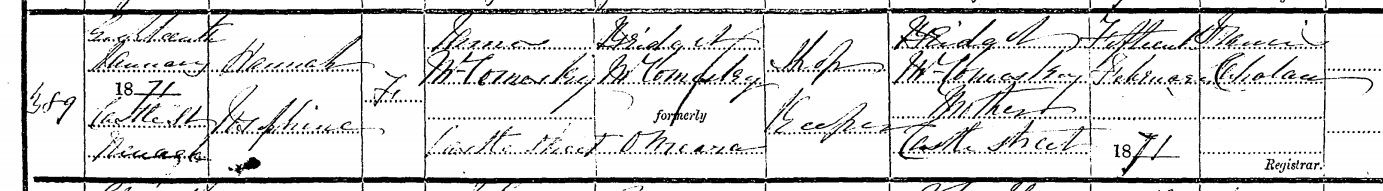 389
Eighteenth
January
1871
Castle St
Nenagh
Hannah
Josephine
F
James
McComasky
Castle Street
Bridget
McComasky
formerly
O'Meara
Shop
Keeper
Bridget
McComaskey
Mother
Castle Street
Fifteenth
February
1871
Francis
Registrar.